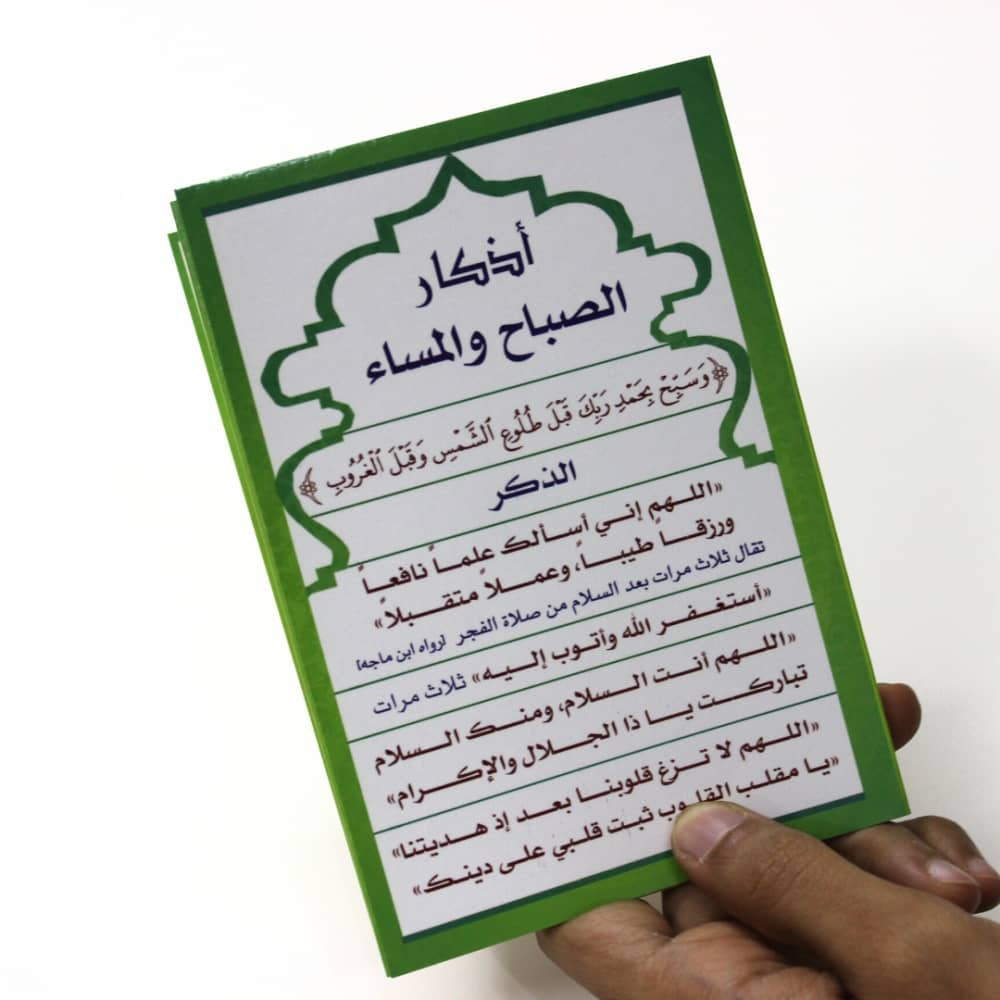 أذكار
الصباح والمساء
﴿وَسَبِّحْ بِحَمْدِ رَبِّكَ قَبْلَ طُلُوعِ ٱلشَّمْسِ وَقَبْلَ ٱلْغُرُوبِ﴾
الذكر
«اللهم إني أسألك علماً نافعاً
ورزقاً طيباً، وعملاً متقبلاً»
تقال ثلاث مرات بعد السلام من صلاة الفجر [رواه ابن ماجه]
«أستغفر الله وأتوب إليه» ثلاث مرات
«اللهم أنت السلام، ومنك السلام
تباركت يا ذا الجلال والإكرام»
«اللهم لا تزغ قلوبنا بعد إذ هديتنا»
«يا مقلب القلوب ثبت قلبي على دينك»